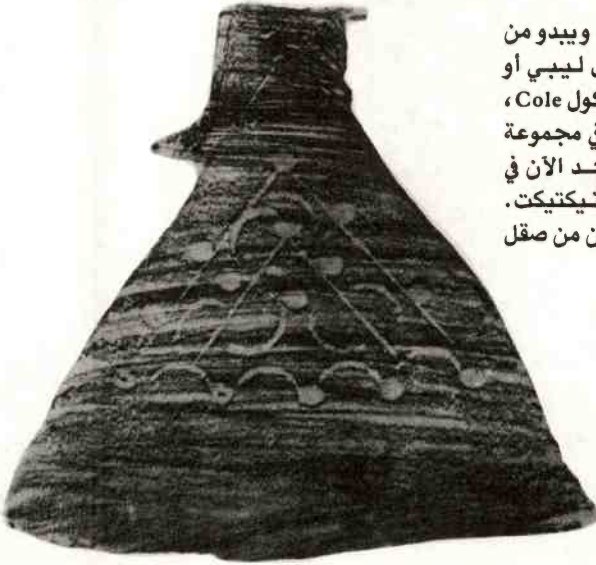 ويبدو من
ليبي أو
كول Cole،
في مجموعة
الآن في
نيكتيكت.
من صقل